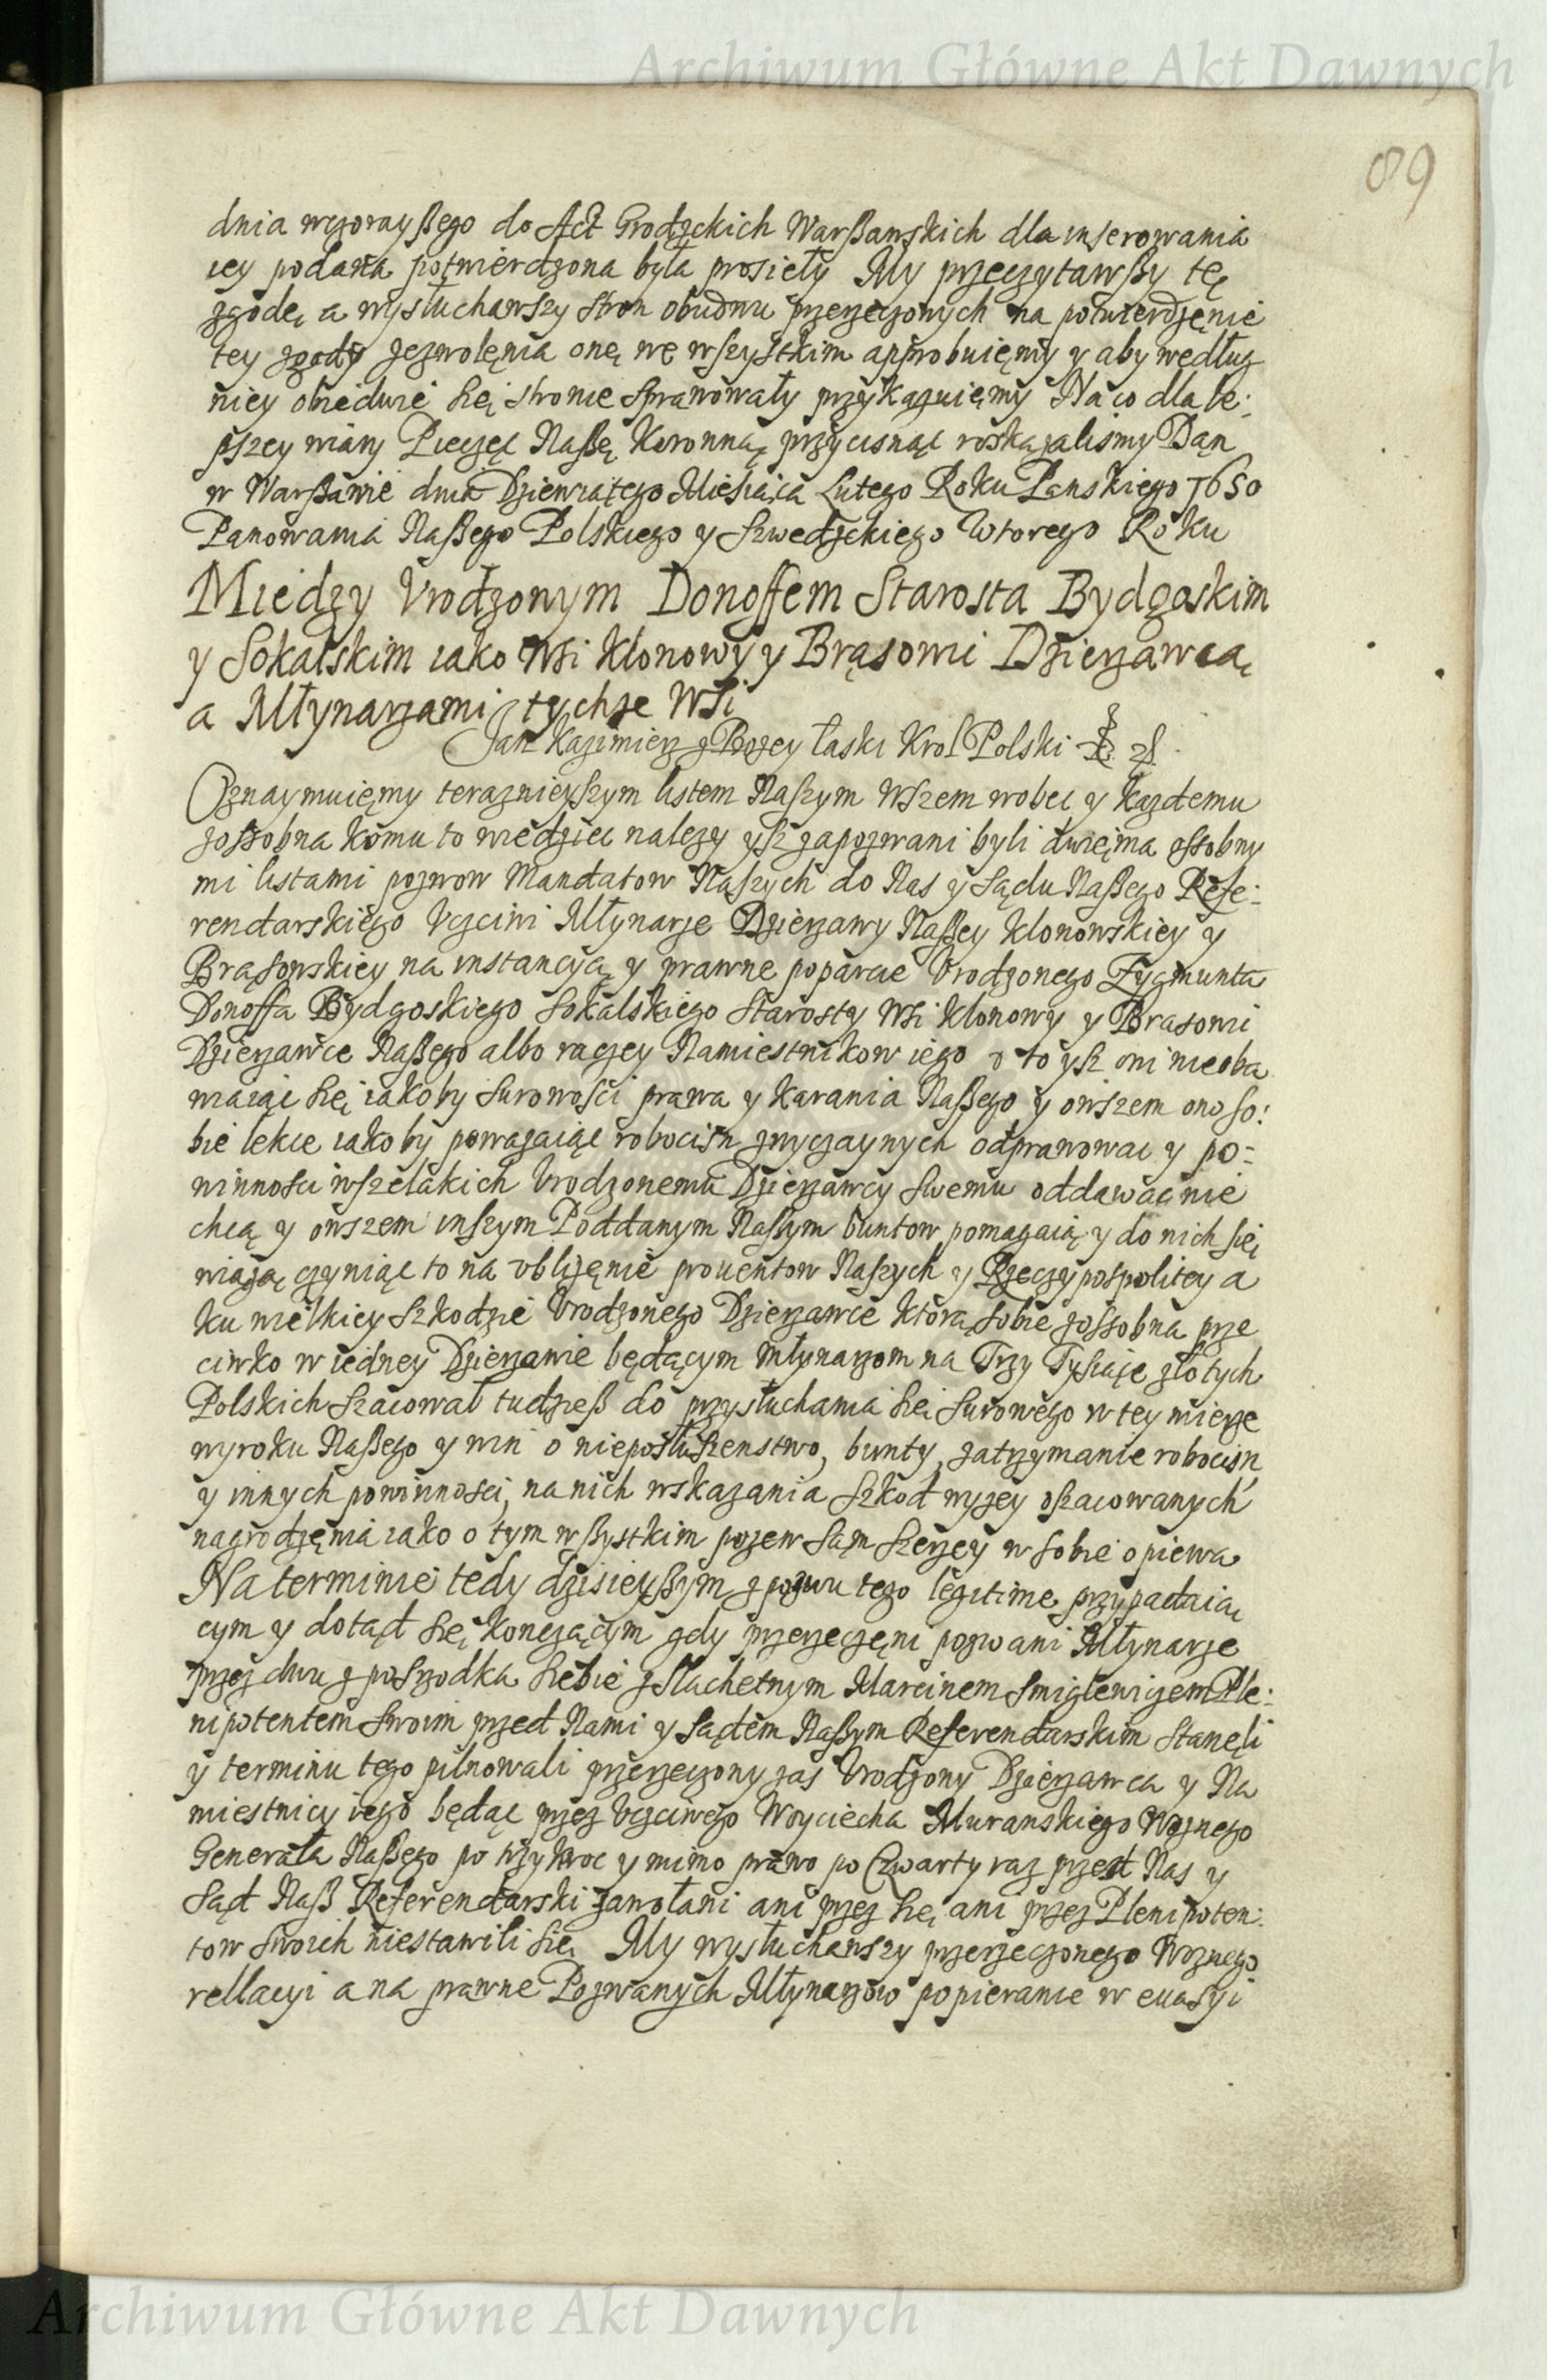 Archiwum Główne Akt Dawnych
89
dnia wczorayßego do Act Grodzkich Warßawskich dla inserowania
iey podana potwierdzona była prosieły My przeczytawßy tę
zgodę a wysłuchawszy stron obudwu przerzeczonych na potwierdzęnie
tey zgody zezwolęnia onę we wszystkim approbuięmy y aby według
niey obiedwie się stronie sprawowały przykazuięmy Na co dla le:
pszey wiary Pieczęć Naßę Koronną przycisnąć roskazalismy Dan
w Warßawie dnia Dziewiątego Miesiąca Lutego Roku Panskiego 1650
Panowania Naßego Polskiego y Szwedzkiego Wtorego Roku
Miedzy Vrodzonym Donoffem Starosta Bydgoskim
y Sokalskim iako Wsi Klonowy y Brąsowi Dzierzawcą
a Młynarzami tychze Wsi
Jan Kazimierz z Bozey łaski Krol Polski
Oznaymuięmy teraznieyszym listem Naszym Wszem wobec y kazdemu
zossobna komu to wiedziec nalezy ysz zapozwani byli dwięma ossobny
mi listami pozwow Mandatow Naszych do Nas y Sądu Naßego Refe:
rendarskiego Vczciwi Młynarze Dzierzawy Naßey Klonowskiey y
Brąsowskiey na instancyą y prawne poparcie Vrodzonego Zygmunta
Donoffa Bydgoskiego Sokalskiego Starosty Wsi Klonowy y Brasowi
Dzierzawce Naßego albo raczey Namiestnikow iego o to ysz oni nieoba
wiaiąc się iakoby surowości prawa y karania Naßego y owszem ono so:
bie lekce iakoby powazaiąc robocizn zwyczaynych odprawowac y po:
winnosci wszelakich Vrodzonemu Dzierzawcy swemu oddawac nie
chcą y owszem inszym Poddanym Naßym buntow pomagaią y do nich się
wiążą czyniąc to na vbliżęnie prouentow Naszych y Rzeczypospolitey a
ku wielkiey szkodzie Vrodzonego Dzierzawce którą sobie zossobna prze
ciwko w iedney Dzierzawie będącym Młynarzom na Trzy Tysiące złotych
Polskich szacował tudzieß do przysłuchania się surowego w tey mierze
wyroku Naßego y win o nieposłuszenstwo, bunty, zatrzymanie robocizn
y innych powinnosci, na nich wskazania szkod wyzey oszacowanych
nagrodzęnia iako o tym wßystkim pozew sąm szerzey w sobie opiewa
Na terminie tedy dzisieyßym z pozwu tego legitime przypadaią
cym y dotąd się konczącym gdy przerzeczęni pozwani Młynarze
przez dwu z poszrodka siebie z Slachetnym Marcinem Smiglewiczem Ple:
nipotentem swoim przed Nami y Sądem Naßym Referendarskim stanęli
y terminu tego pilnowali przerzeczony zas Vrodzony Dzierzawca y Na
miestnicy iego będąc przez Vczciwego Woyciecha Muranskiego Woznego
Generała Naßego po trzykroc y mimo prawo po czwarty raz przed Nas y
Sąd Naß Referendarski zawołani ani przez się ani przez Plenipoten:
tow swoich niestawili się My wysłuchawszy przerzeczonego Woznego
rellacyi a na prawne Pozwanych Młynarzow popieranie w euasyi
Archiwum Główne Akt Dawnych